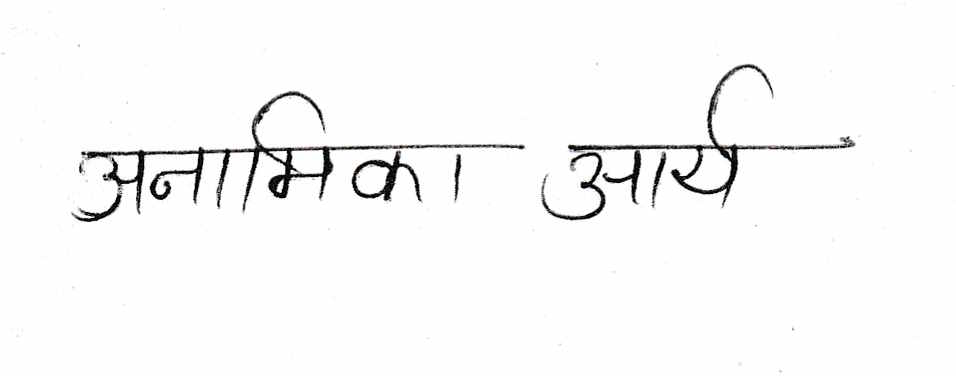 अनामिका आर्य